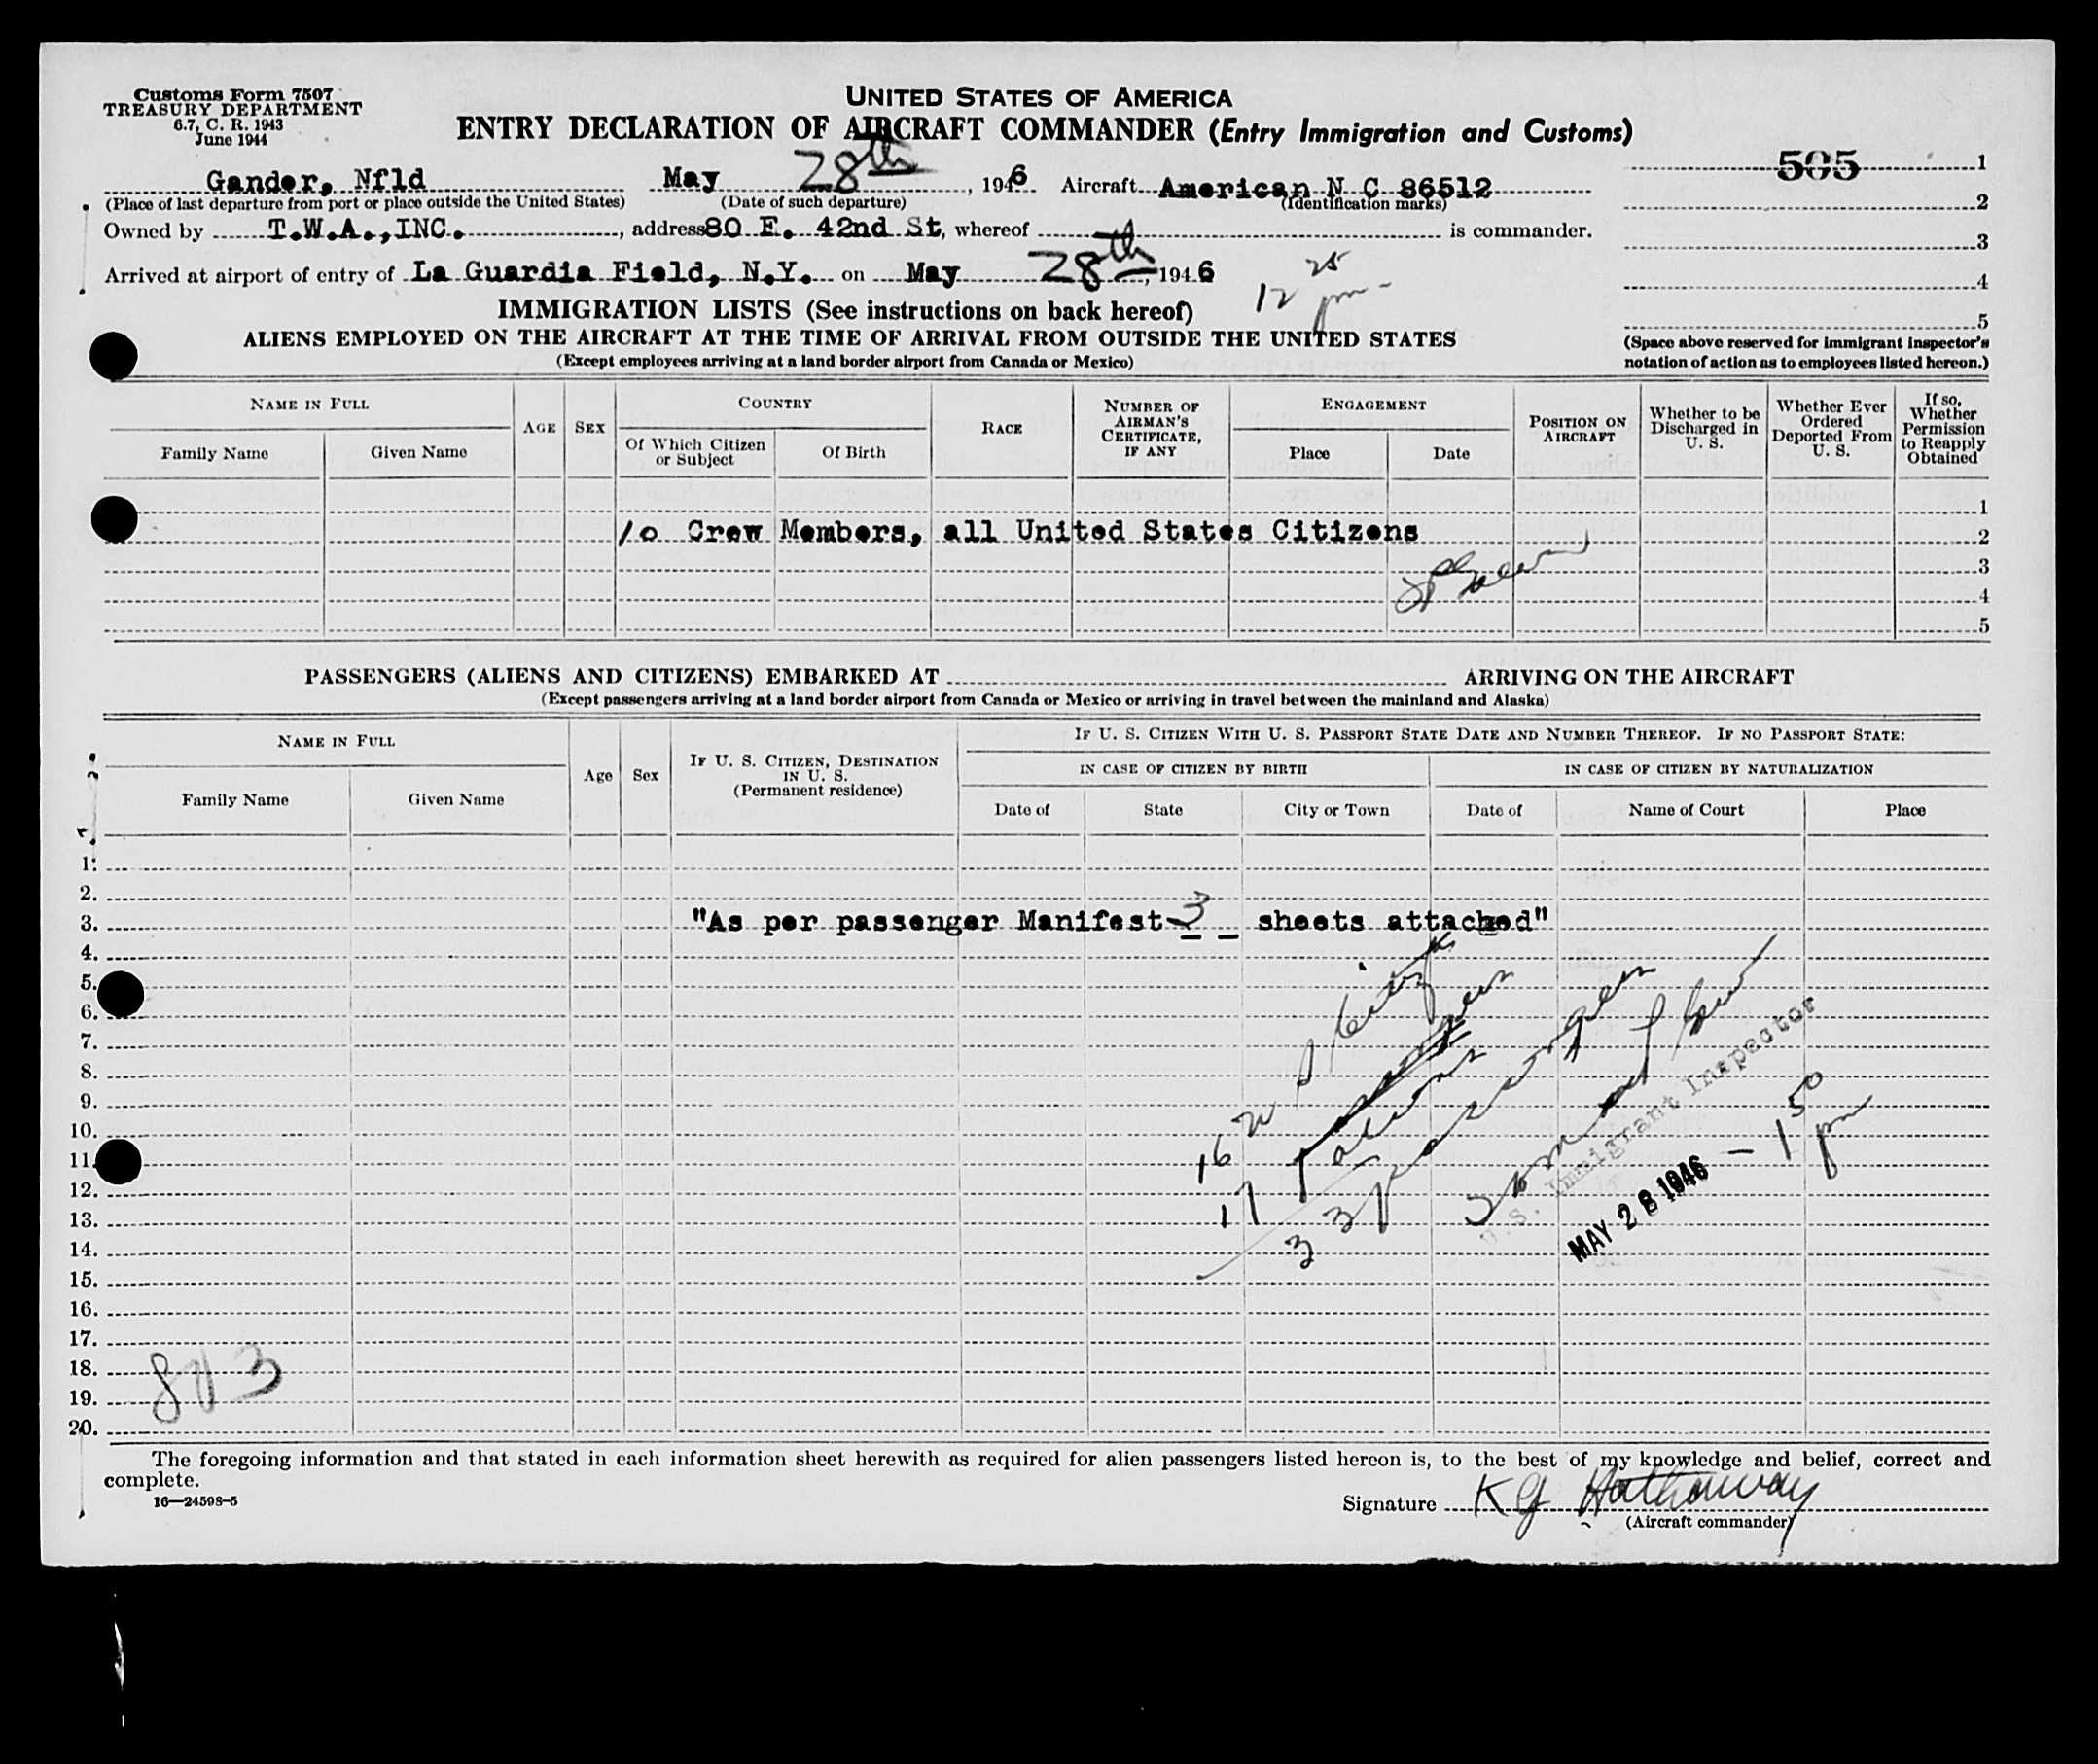 Customs Form 7507
TREASURY DEPARTMENT
6.7, C. R. 1943
June 1944
UNITED STATES OF AMERICA
ENTRY DECLARATION OF AIRCRAFT COMMANDER (Entry Immigration and Customs)
505 1
Gander, Nfld May 28th, 1946 Aircraft American N C 86512
(Place of last departure from port or place outside the United States) (Date of such departure) (Identification marks)
2
Owned by T.W.A.,INC., address 80 E. 42nd St, whereof is commander.
3
Arrived at airport of entry of La Guardia Field, N.Y. on May 28th, 1946
12 25 pm
4
IMMIGRATION LISTS (See instructions on back hereof)
5
ALIENS EMPLOYED ON THE AIRCRAFT AT THE TIME OF ARRIVAL FROM OUTSIDE THE UNITED STATES
(Except employees arriving at a land border airport from Canada or Mexico)
(Space above reserved for immigrant inspector's
notation of action as to employees listed hereon.)
NAME IN FULL
Family Name Given Name
AGE SEX
COUNTRY
Of Which Citizen or Subject Of Birth
RACE
NUMBER OF AIRMAN'S CERTIFICATE, IF ANY
ENGAGEMENT
Place Date
POSITION ON AIRCRAFT
Whether to be Discharged in U. S.
Whether Ever Ordered Deported From U. S.
If so, Whether Permission to Reapply Obtained
1
10 Crew Members, all United States Citizens 2
3
4
5
PASSENGERS (ALIENS AND CITIZENS) EMBARKED AT ARRIVING ON THE AIRCRAFT
(Except passengers arriving at a land border airport from Canada or Mexico or arriving in travel between the mainland and Alaska)
NAME IN FULL
Family Name Given Name
Age Sex
IF U. S. CITIZEN, DESTINATION IN U. S.
(Permanent residence)
IF U. S. CITIZEN WITH U. S. PASSPORT STATE DATE AND NUMBER THEREOF. IF NO PASSPORT STATE:
IN CASE OF CITIZEN BY BIRTH IN CASE OF CITIZEN BY NATURALIZATION
Date of State City or Town Date of Name of Court Place
1.
2.
3. "As per passenger Manifest 3 sheets attached"
4.
5.
6.
7.
8.
9.
10.
11.
12.
13.
14.
15.
16.
17.
18.
19.
20.
16 U S Citizens
17 aliens
33 passengers
U.S. Immigrant Inspector
MAY 28 1946 - 1 50 pm
The foregoing information and that stated in each information sheet herewith as required for alien passengers listed hereon is, to the best of my knowledge and belief, correct and
complete.
16—24598-5
Signature K G Hathaway
(Aircraft commander)